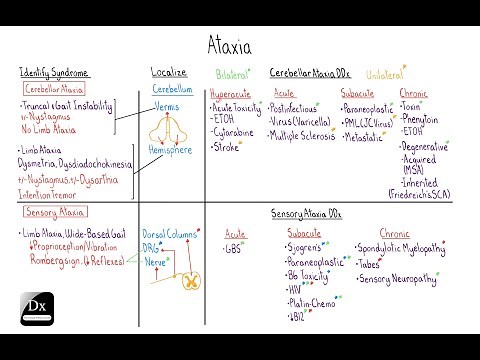 Ataxia
Identify Syndrome
Localize
Bilateral
Cerebellar Ataxia DDx
Unilateral
Cerebellar Ataxia
•Truncal & Gait Instability
+/- Nystagmus
No Limb Ataxia
•Limb Ataxia
Dysmetria, Dysdiadochokinesia
+/-Nystagmus, +/-Dysarthria
Intention Tremor
Cerebellum
Vermis
Hemisphere
Hyperacute
•Acute Toxicity
-ETOH
-Cytarabine
•Stroke
Acute
•Postinfectious
•Virus (Varicella)
•Multiple Sclerosis
Subacute
•Paraneoplastic
•PML (JC Virus)
•Metastatic
Chronic
•Toxin
-Phenytoin
-ETOH
•Degenerative
-Acquired
(MSA)
-Inherited
(Friedreich's, SCA)
Sensory Ataxia
•Limb Ataxia, Wide-Based Gait
↓Proprioception/Vibration
Romberg sign, (↓Reflexes)
Dorsal Columns
DRG
Nerve
Sensory Ataxia DDx
Acute
•GBS
Subacute
•Sjogren's
•Paraneoplastic
•B6 Toxicity
•HIV
•Platin-Chemo
•↓B12
Chronic
•Spondylotic Myelopathy
•Tabes
•Sensory Neuropathy
Dx